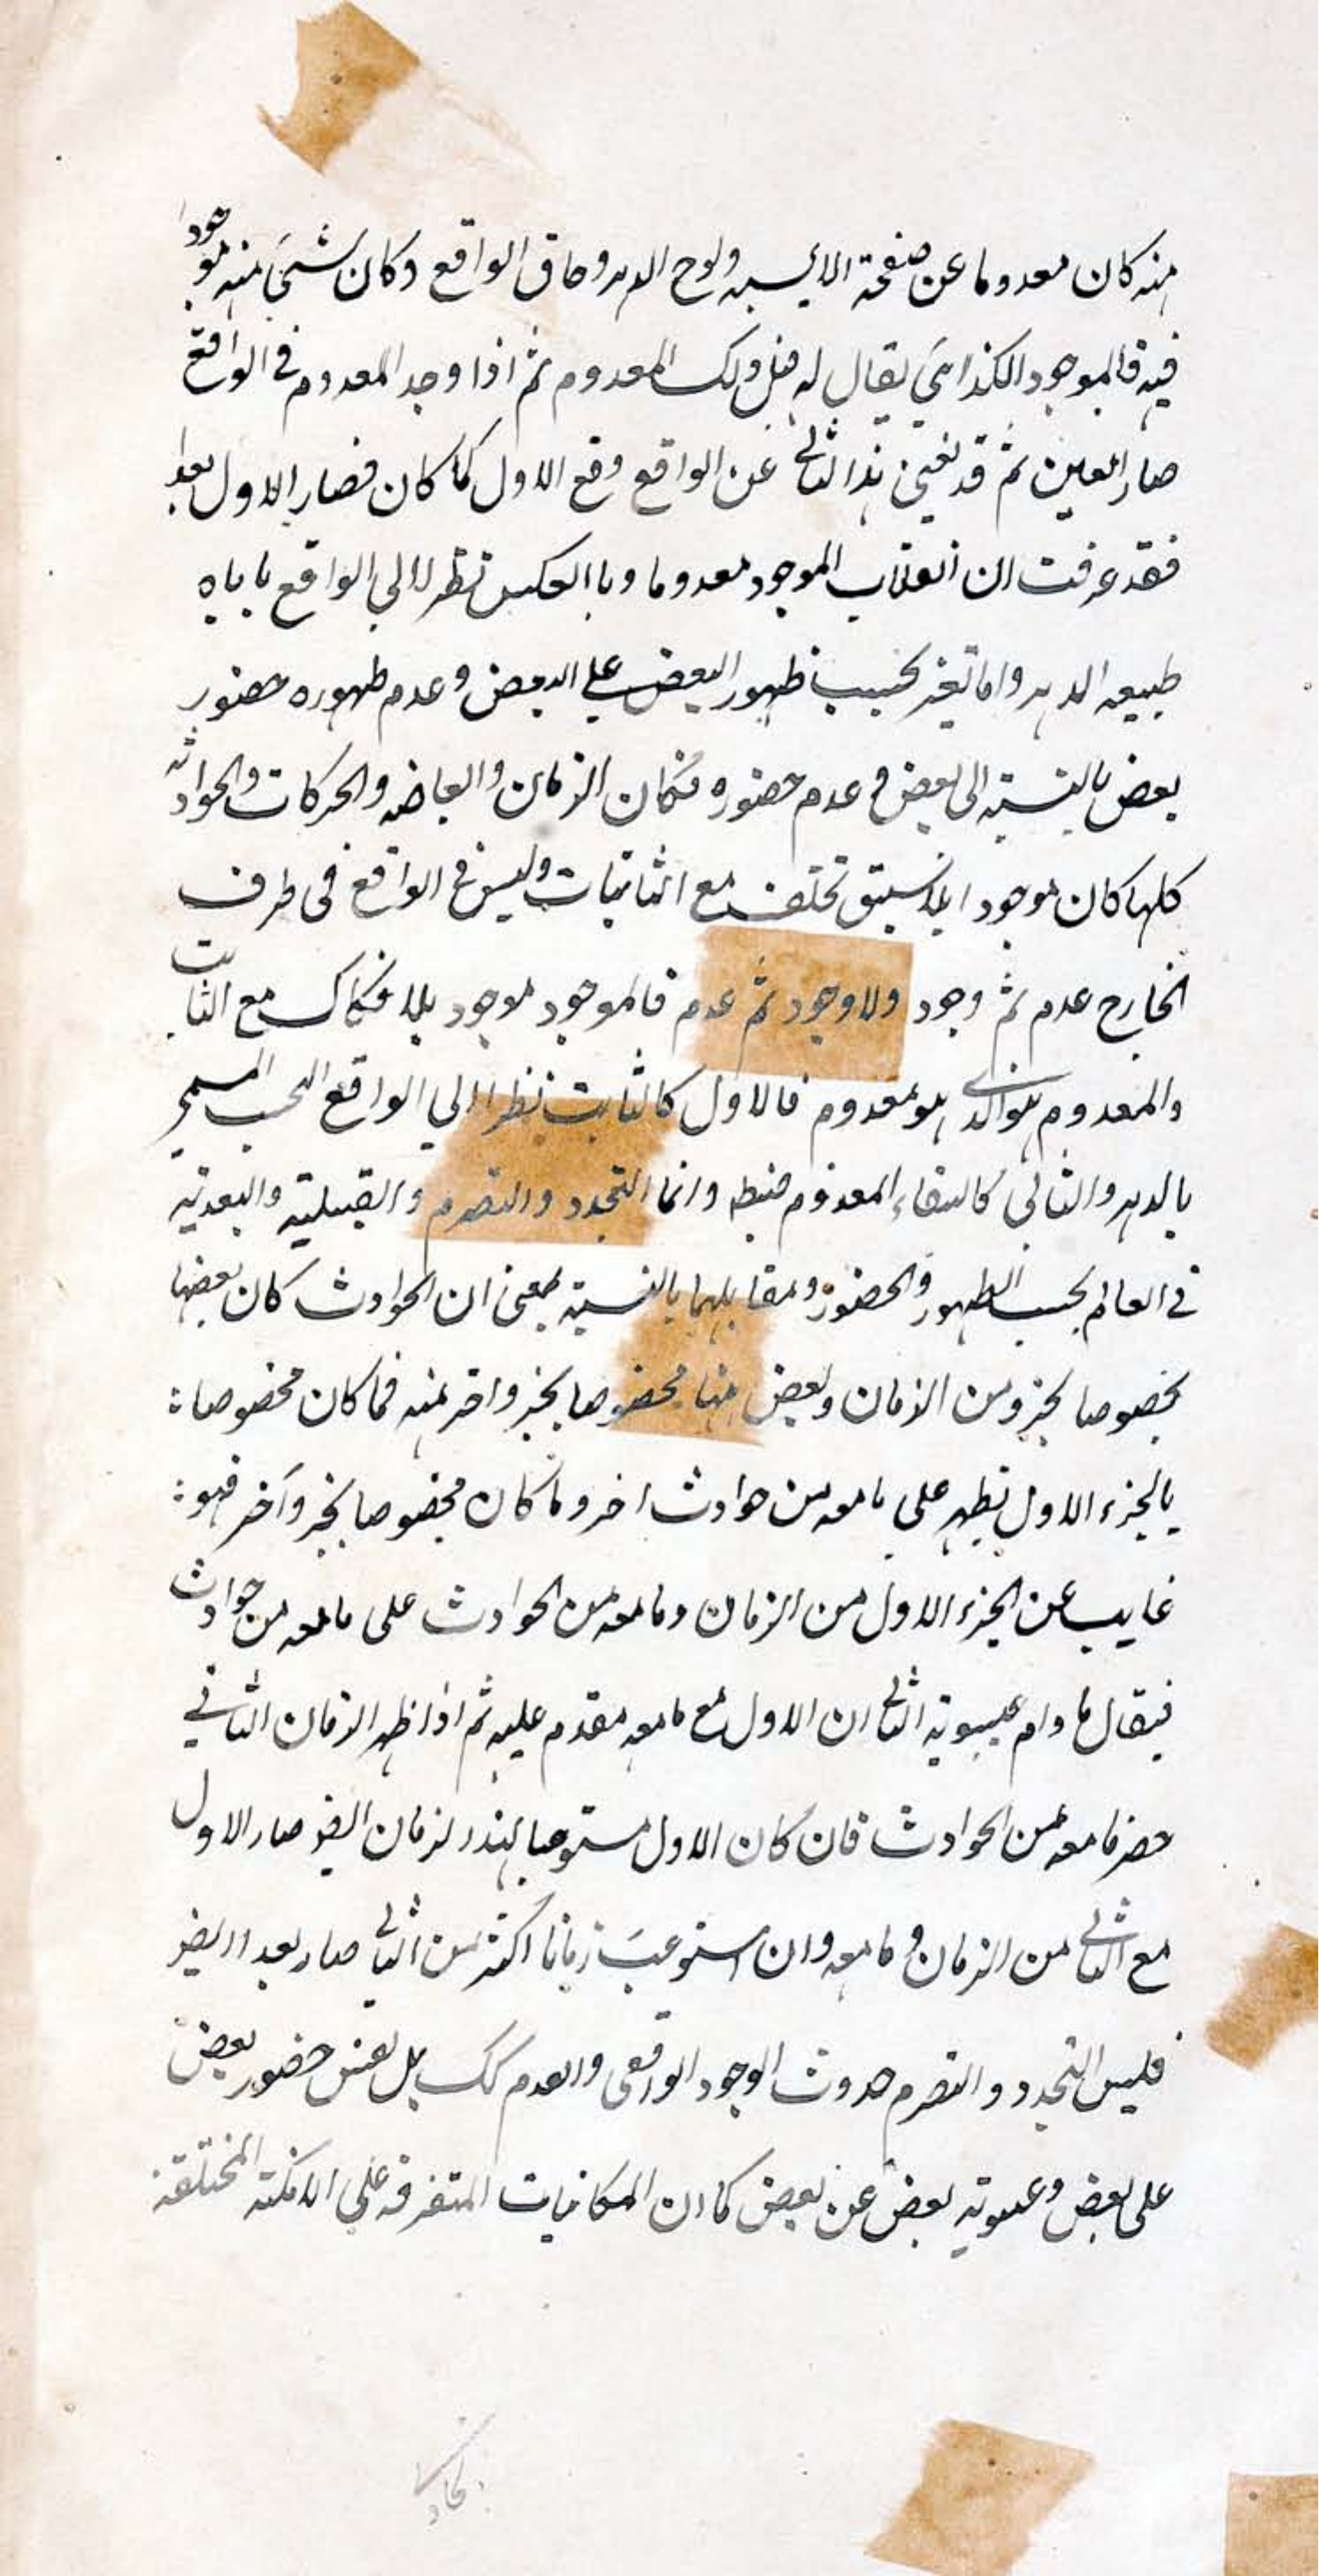 منه كان معدوما عن صفحة الايسيه ولوح الدهر وحاق الواقع وكان شئ منه موجودا
فيه فالموجود الكذائي يقال له قبل ذلك المعدوم ثم اذا وجد المعدوم في الواقع
صار امعين ثم قد يغيب هذا الثاني عن الواقع وقع الاول كما كان فصار الاول بعدا
فقد عرفت ان انقلاب الموجود معدوما وبا العكس نظرا الي الواقع ياباه
طبيعه الدهر واما تغير بحسب ظهور البعض علي البعض وعدم ظهوره حضور
بعض بالنسبة الى بعض وعدم حضوره فكان الزمان والعاضه والحركات والحوادث
كلها كان موجودا بلا سبق تخلف مع الثابتات وليس في الواقع في ظرف
الخارج عدم ثم وجود ولا وجود ثم عدم فالموجود موجود بلا فكاك مع الثابت
والمعدوم هو الذي هو معدوم فالاول كالثابت نظرا الي الواقع البحت المسمى
بالدهر والثاني كالبقاء المعدوم فيه وانما التجدد والتصرم والقبلية والبعدية
في العالم بحسب الظهور والحضور ومقابلهما بالنسبة بمعنى ان الحوادث كان بعضها
مخصوصا بجزو من الزمان وبعض منها مخصوصا بجزو اخر منه فما كان مخصوصا
بالجزء الاول يظهر على ما معه من حوادث اخر وما كان مخصوصا بجزو آخر فهو
غايب عن الجزء الاول من الزمان وما معه من الحوادث على ما معه من حوادث
فيقال ما دام غيبوبة الثاني ان الاول مع ما معه مقدم عليه ثم اذا ظهر الزمان الثاني
حضر ما معه من الحوادث فان كان الاول مستوعبا لهذا لزمان ايضا صار الاول
مع الثاني من الزمان وما معه وان استوعب زمانا اكثر من الثاني صار بعدا ايضا
فليس التجدد والتصرم حدوث الوجود الواقعى والعدم كك بل نفس حضور بعض
على بعض وغيبوبة بعض عن بعض كما ان المكانيات المتفرقه علي الامكنة المختلفة